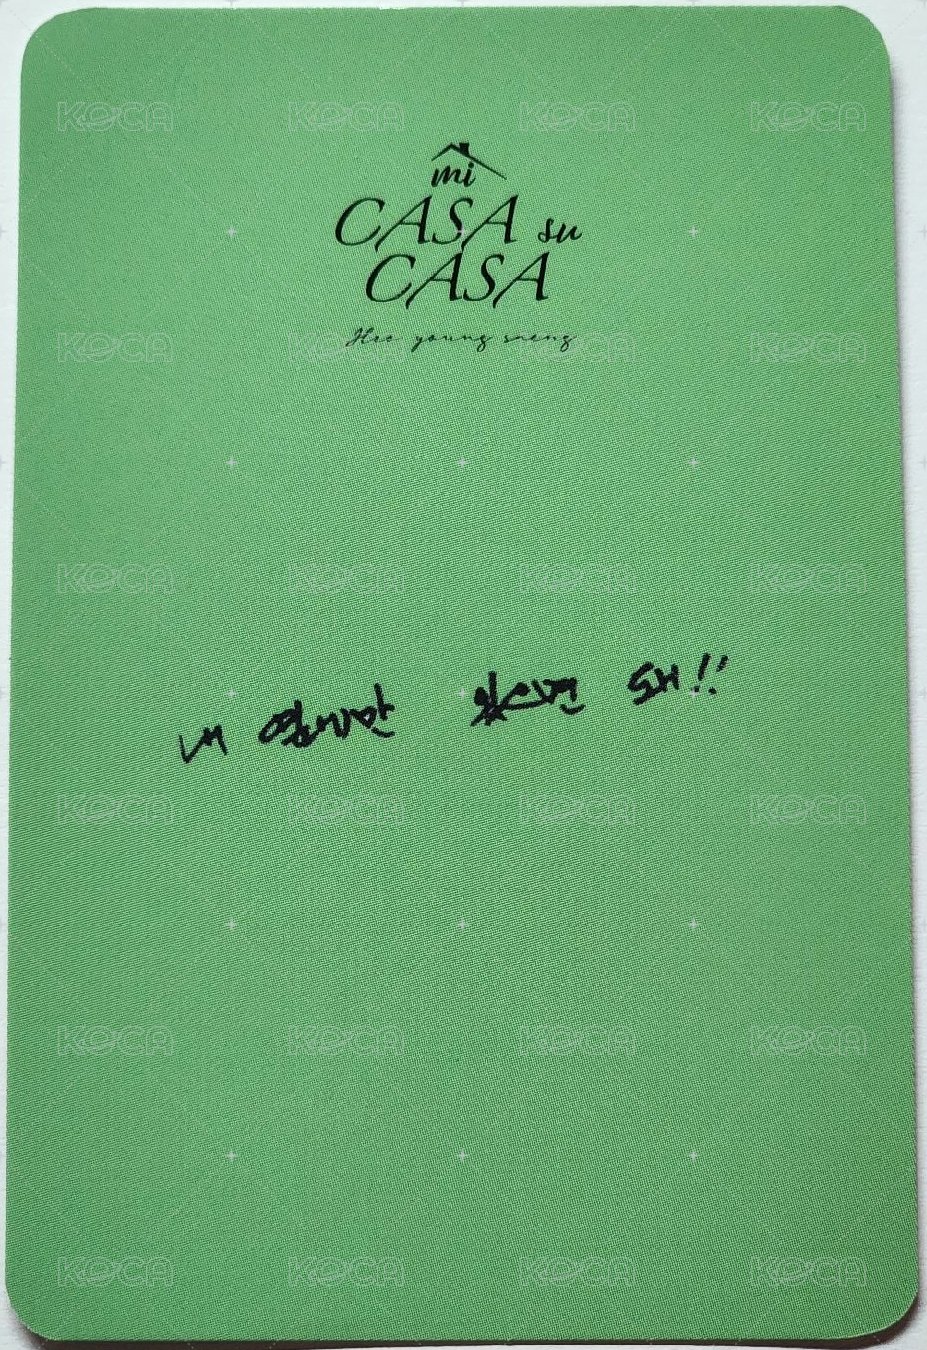 KOCA KOCA KOCA KOCA
mi
CASA su
CASA
Heo young saeng
KOCA KOCA KOCA KOCA
KOCA KOCA KOCA KOCA
내 옆에만 있으면 돼!!
KOCA KOCA KOCA KOCA
KOCA KOCA KOCA KOCA
KOCA KOCA KOCA KOCA